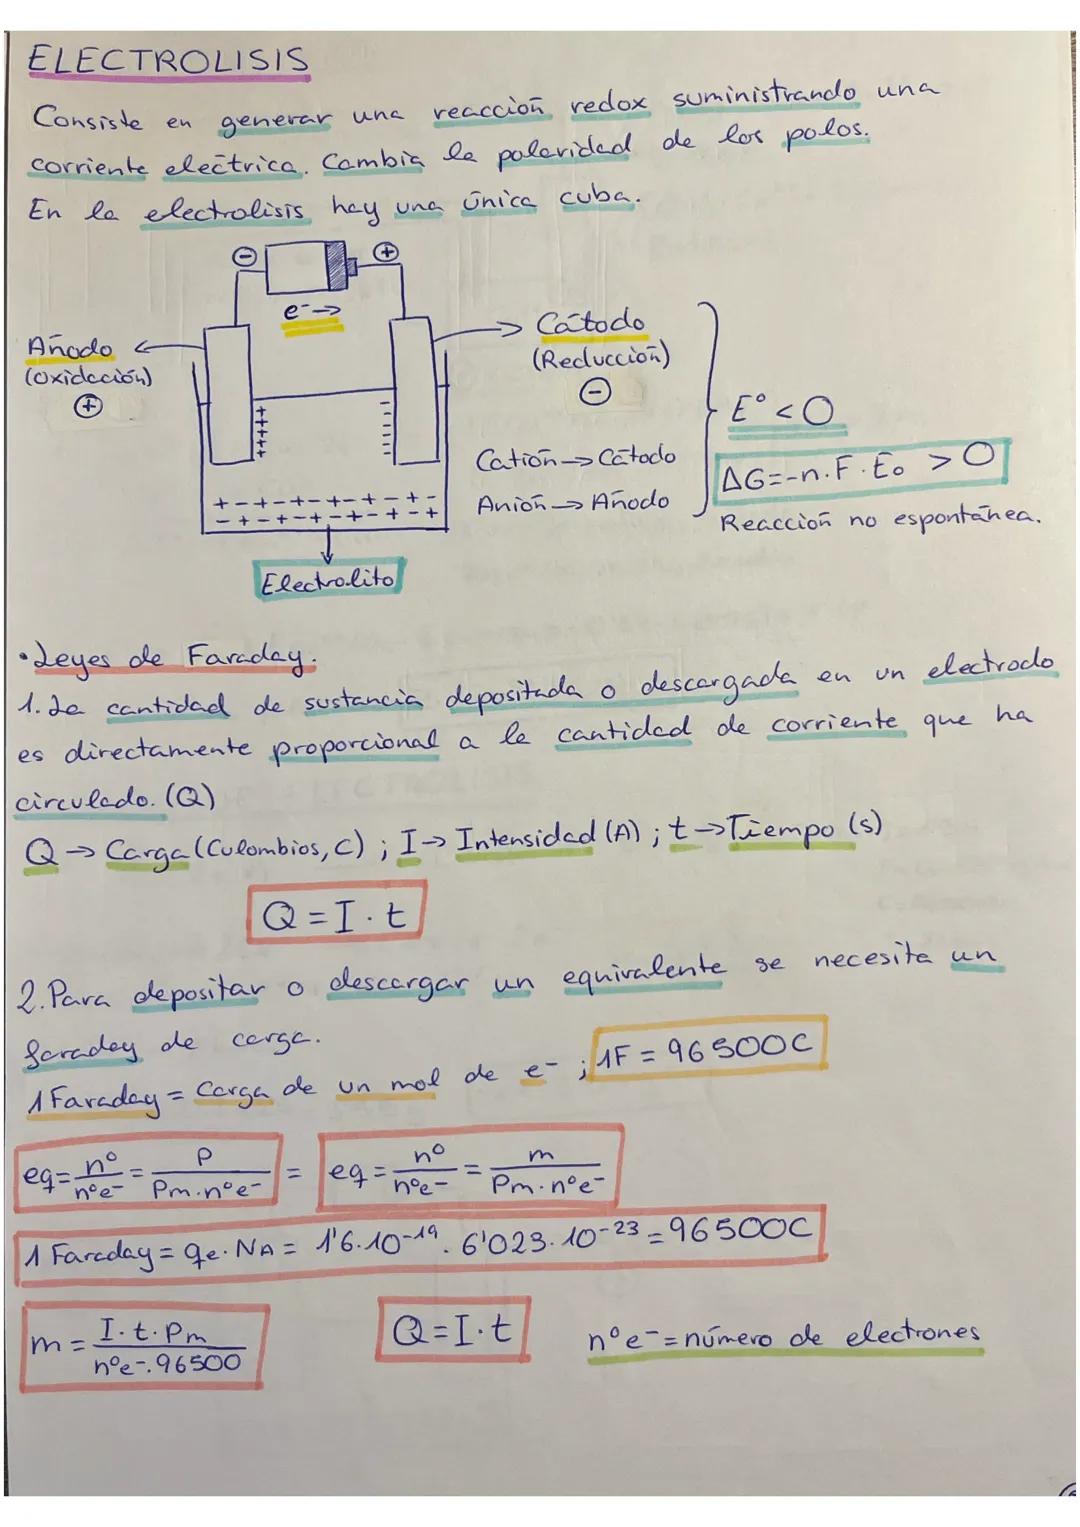 ELECTROLISIS
Consiste en generar una reacción redox suministrando una
corriente eléctrica. Cambia la polaridad de los polos.
En la electrolisis hay una única cuba.
⊖ ⊕
e⁻→
Ánodo
(Oxidación)
⊕
Cátodo
(Reducción)
⊖
Catión → Cátodo
Anión → Ánodo
E° < 0
ΔG=-n·F·E₀ > 0
Reacción no espontánea.
+ + + + +
- - - - -
+ - + - + - + - + - + -
- + - + - + - + - + - +
Electrolito
• Leyes de Faraday.
1. La cantidad de sustancia depositada o descargada en un electrodo
es directamente proporcional a la cantidad de corriente que ha
circulado. (Q)
Q → Carga (Culombios, C) ; I → Intensidad (A) ; t → Tiempo (s)
Q = I · t
2. Para depositar o descargar un equivalente se necesita un
faraday de carga.
1 Faraday = Carga de un mol de e⁻ ; 1F = 96500C
eq = n°/n°e⁻ = P/Pm·n°e⁻ = eq = n°/n°e⁻ = m/Pm·n°e⁻
1 Faraday = qe · NA = 1'6·10⁻¹⁹ · 6'023·10⁻²³ = 96500C
m = I·t·Pm/n°e⁻·96500
Q = I·t
n°e⁻ = número de electrones